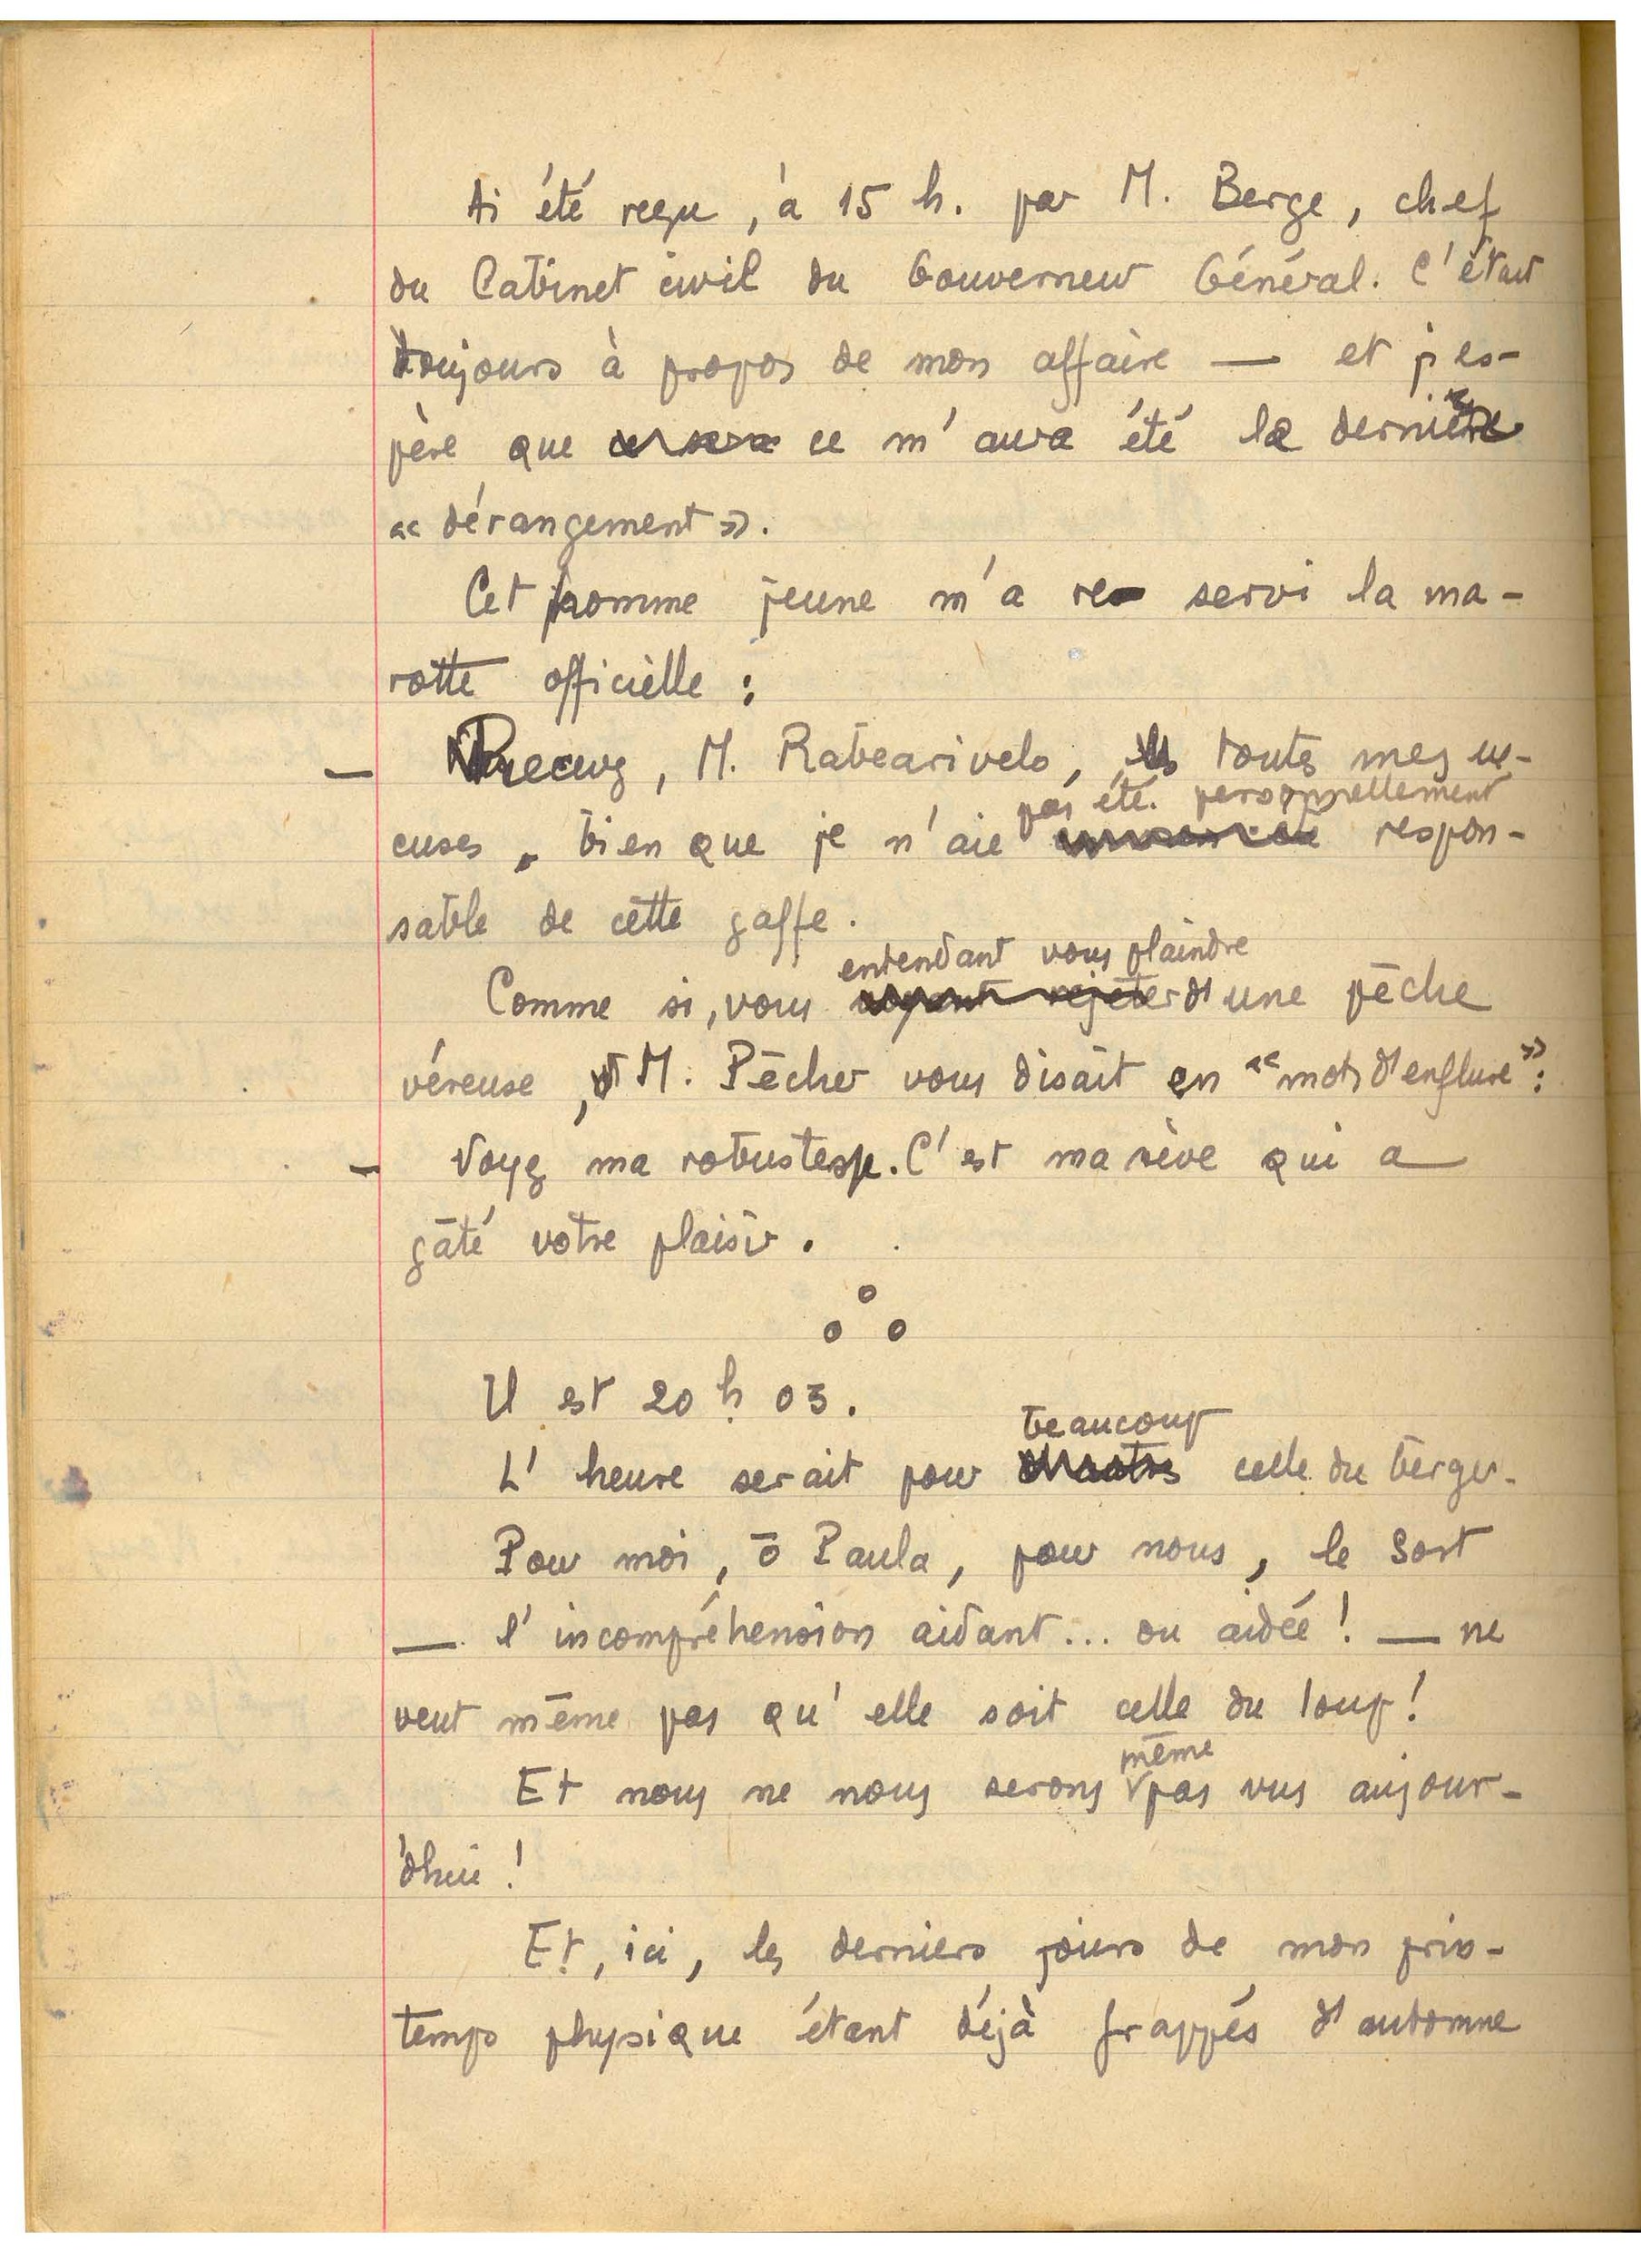 Ai été reçu, à 15 h. par M. Berge, chef
du Cabinet civil du Gouverneur Général. C'était
toujours à propos de mon affaire — et j'es-
père que ce m'aura été le dernier
« dérangement ».
Cet homme jeune m'a re servi la ma-
rotte officielle :
— Recevez, M. Rabearivelo, toutes mes ex-
pas été personnellement
cuses, bien que je n'aie respon-
sable de cette gaffe.
entendant vous plaindre
Comme si, vous d'une pêche
véreuse, M. Pêcher vous disait en « mots d'enflure » :
— Voyez ma robustesse. C'est ma sève qui a
gâté votre plaisir.
Il est 20 h 03.
beaucoup
L'heure serait pour celle du berger.
Pour moi, ô Paula, pour nous, le Sort
— l'incompréhension aidant... ou aidée ! — ne
veut même pas qu'elle soit celle du loup !
même
Et nous ne nous serons pas vus aujour-
d'hui !
Et, ici, les derniers jours de mon prin-
temps physique étant déjà frappés d'automne